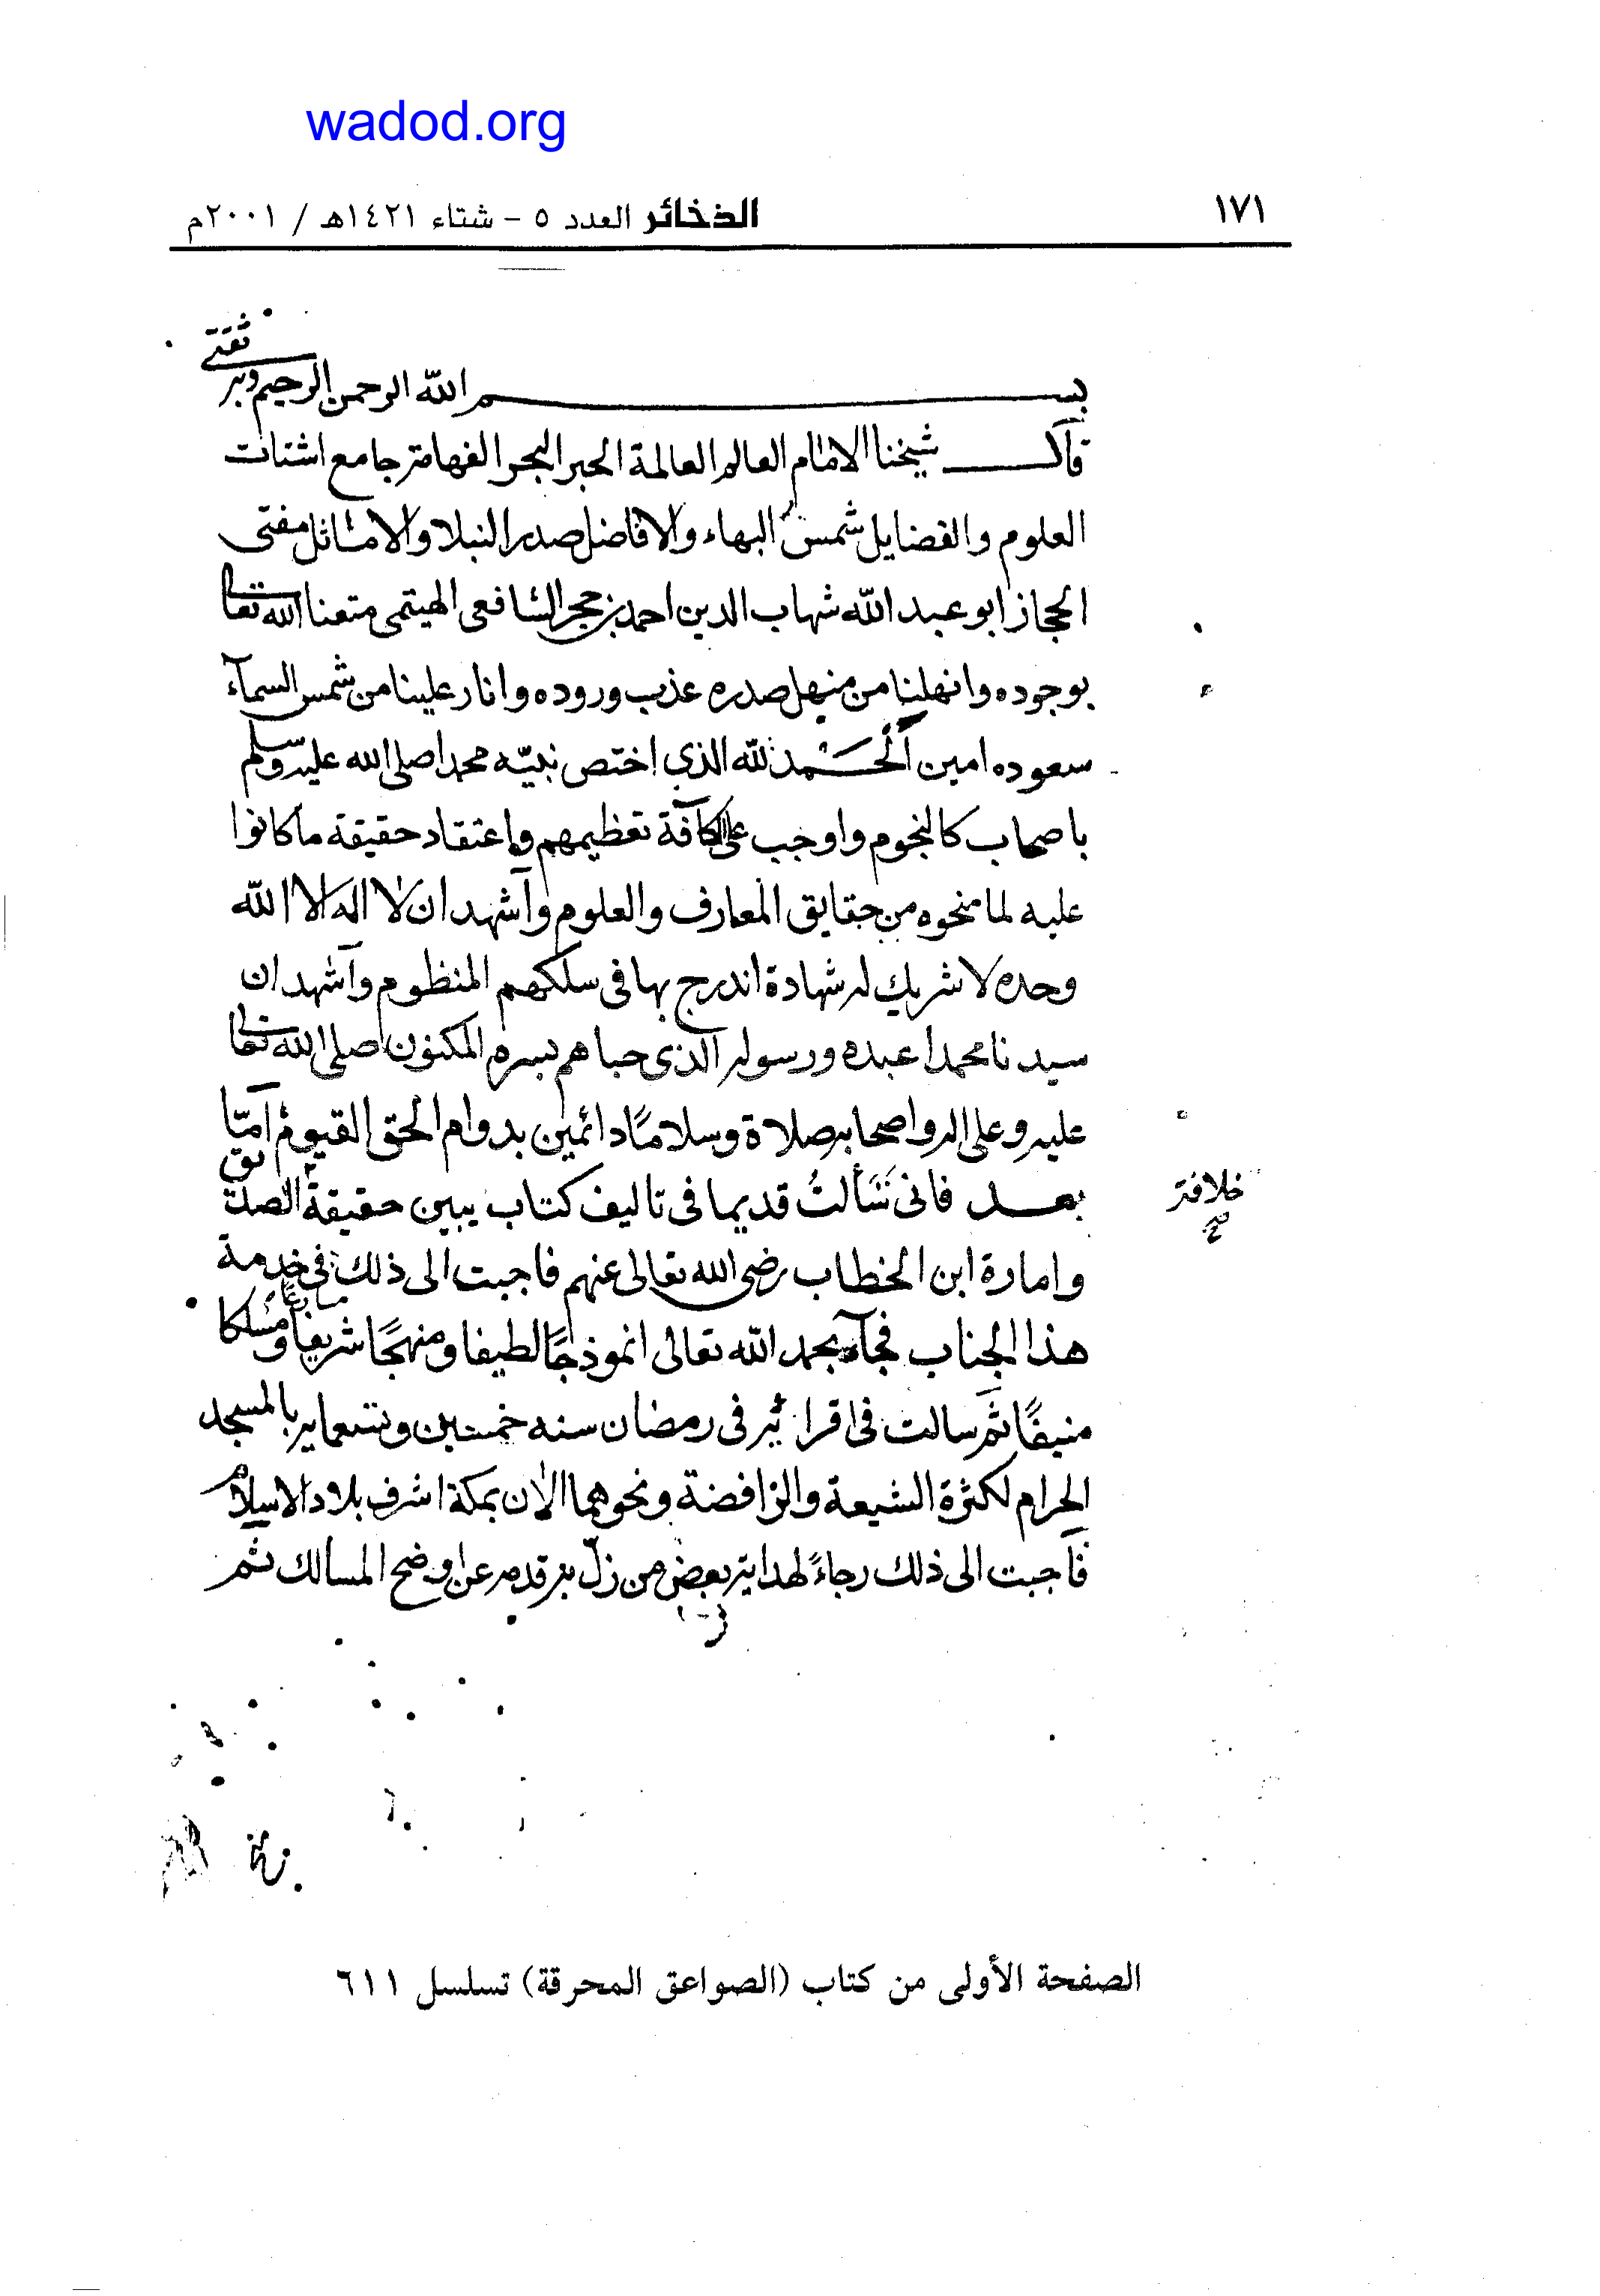 wadod.org
١٧١
الذخائر العدد ٥ - شتاء ١٤٢١هـ / ٢٠٠١م
بسم الله الرحمن الرحيم وبه ثقتي
قال شيخنا الامام العالم العالمة الحبر البحر الفهامة جامع اشتات
العلوم والفضايل شمس البهاء والافاضل صدر النبلا والاماثل مفتى
الحجاز ابو عبد الله شهاب الدين احمد بن حجر الشافعى الهيتمى متعنا الله تعالى
بوجوده وانهلنا من منهل صدره عذب وروده وانار علينا من شمس السمآء
سعوده امين الحمد لله الذي اختص نبيّه محمدا صلى الله عليه وسلم
باصحاب كالنجوم واوجب على الكآفة تعظيمهم واعتقاد حقيقة ما كانوا
عليه لما منحوه من حقايق المعارف والعلوم وآشهد ان لا اله الا الله
وحده لا شريك له شهادة اندرج بها فى سلكهم المنظوم وآشهد ان
سيدنا محمدا عبده ورسوله الذى حباهم بسره المكنون صلى الله تعالى
عليه وعلى اله واصحابه صلاة وسلامًا دائمين بدوام الحق القيوم امّا
بعد فانى سألت قديما فى تاليف كتاب يبين حقيقة الصديق
خلافة
صح
وامارة ابن الخطاب رضى الله تعالى عنهم فاجبت الى ذلك فى خدمة
هذا الجناب فجآء بحمد الله تعالى انموذجًا لطيفا ومنهجًا شريفا ومسلكا
منيفًا ثم سالت فى اقرائه فى رمضان سنه خمسين وتسعماية بالمسجد
الحرام لكثرة الشيعة والرافضة ونحوهما الان بمكة اشرف بلاد الاسلام
فاجبت الى ذلك رجاءً لهداية بعض من زلّ به قدمه عن اوضح المسالك ثم
الصفحة الأولى من كتاب (الصواعق المحرقة) تسلسل ٦١١